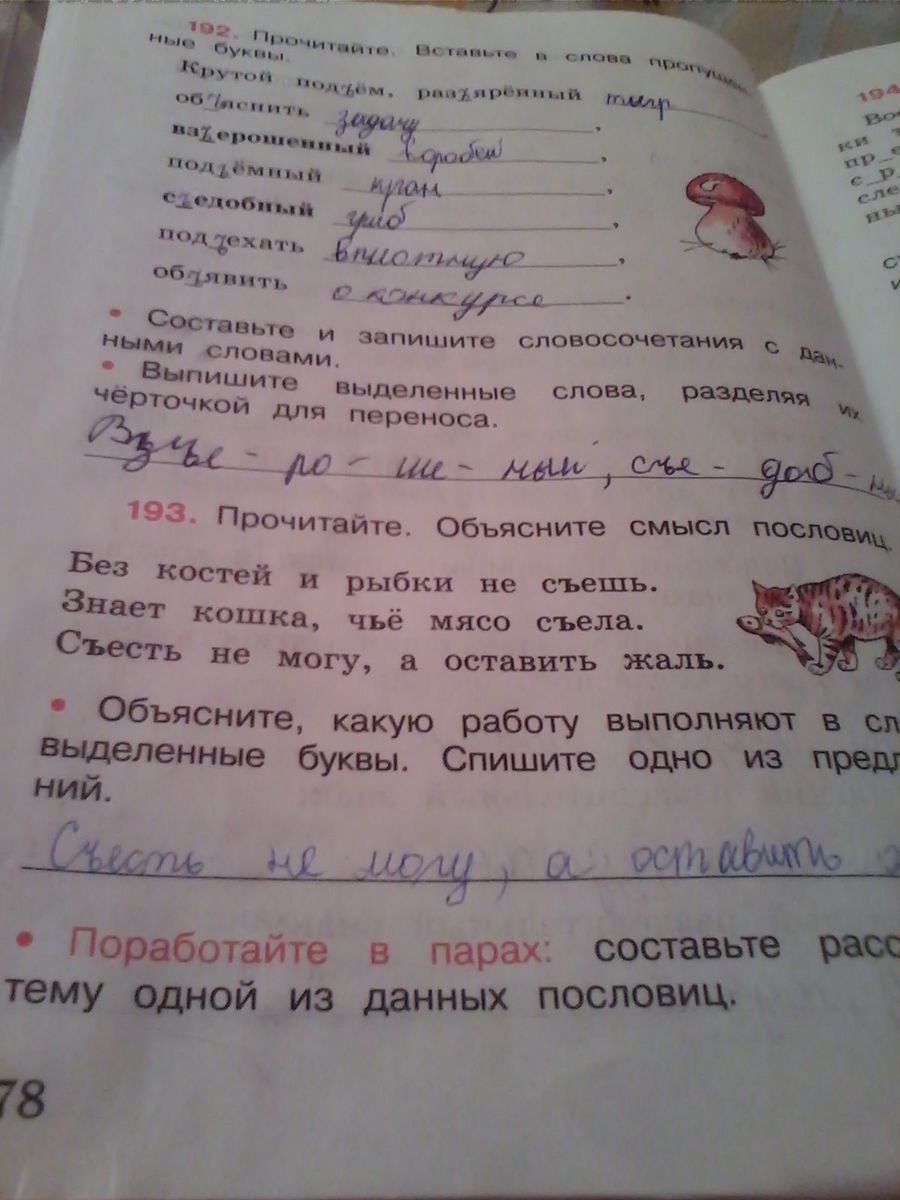 192. Прочитайте. Вставьте в слова пропущен-
ные буквы.
Крутой подъём, разъярённый тигр
объяснить задачу,
взъерошенный воробей,
подъёмный кран,
съедобный гриб,
подъехать вплотную,
объявить о конкурсе.
• Составьте и запишите словосочетания с дан-
ными словами.
• Выпишите выделенные слова, разделяя их
чёрточкой для переноса.
съе - доб -
193. Прочитайте. Объясните смысл пословиц.
Без костей и рыбки не съешь.
Знает кошка, чьё мясо съела.
Съесть не могу, а оставить жаль.
• Объясните, какую работу выполняют в сл
выделенные буквы. Спишите одно из предл
ний.
Съесть не могу, а оставить
• Поработайте в парах: составьте расс
тему одной из данных пословиц.
78
194
Во
ки
пр_е
с_р
сле
ны